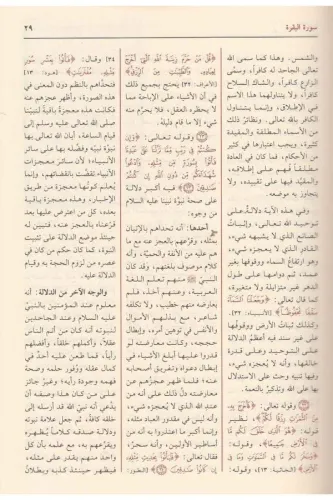 سورة البقرة
٢٩
والشمس. وهذا كما سمى الله
تعالى الجاحد له كافراً، وسمى
الزارع كافراً، والشاك السلاح
كافراً، ولا يتناولهما هذا الاسم
في الإطلاق، وإنما يتناول
الكافر بالله تعالى. ونظائر ذلك
من الأسماء المطلقة والمقيدة
كثيرة، ويجب اعتبارها في كثير
من الأحكام، فما كان في العادة
مطلقاً فهم على إطلاقه،
والمقيد فيها على تقييده، ولا
يتجاوز به موضعه.
وفي هذه الآية دلالة على
توحيد الله تعالى، وإثبات
الصانع الذي لا يشبهه شيء،
القادر الذي لا يعجزه شيء،
وهو ارتفاع السماء ووقوفها بغير
عمد، ثم دوامها على طول
الدهر غير متزايلة ولا متغيرة،
كما قال تعالى: ﴿وَجَعَلْنَا السَّمَاءَ
سَقْفًا مَحْفُوظًا﴾ [الأنبياء: ٣٢]
وكذلك ثبات الأرض ووقوفها
على غير سند فيه أعظم الدلالة
على التوحيد وعلى قدرة
خالقها، وأنه لا يعجزه شيء،
وفيها تنبيه وحث على الاستدلال
بها على الله وتذكير بالنعمة.
وقوله تعالى: ﴿فَأَخْرَجَ بِهِ
مِنَ الثَّمَرَاتِ رِزْقًا لَكُمْ﴾ نظير
قوله: ﴿هُوَ الَّذِي خَلَقَ لَكُمْ مَا
فِي الْأَرْضِ جَمِيعًا﴾، وقوله:
﴿قُلْ مَنْ حَرَّمَ زِينَةَ اللَّهِ الَّتِي أَخْرَجَ
لِعِبَادِهِ وَالطَّيِّبَاتِ مِنَ الرِّزْقِ﴾
[الأعراف: ٣٢] يحتج بجميع ذلك
في أن الأشياء على الإباحة مما
لا يحظره العقل، فلا يحرم منه
شيء إلا ما قام دليله.
وقوله تعالى: ﴿وَإِنْ
كُنْتُمْ فِي رَيْبٍ مِمَّا نَزَّلْنَا عَلَى عَبْدِنَا
فَأْتُوا بِسُورَةٍ مِنْ مِثْلِهِ وَادْعُوا
شُهَدَاءَكُمْ مِنْ دُونِ اللَّهِ إِنْ كُنْتُمْ
صَادِقِينَ﴾ فيه أكبر دلالة
على صحة نبوة نبينا عليه السلام
من وجوه:
أحدها: أنه تحداهم بالإتيان
بمثله، وقرعهم بالعجز عنه مع ما
هم عليه من الأنفة والحمية، وأنه
كلام موصوف بلغتهم، وقد كان
النبي ﷺ منهم تعلم اللغة
العربية، وعنهم أخذ، فلم
يعارضه منهم خطيب، ولا تكلفه
شاعر، مع بذلهم الأموال
والأنفس في توهين أمره، وإبطال
حججه، وكانت معارضته لو
قدروا عليها أبلغ الأشياء في
إبطال دعواه وتفريق أصحابه
عنه؛ فلما ظهر عجزهم عن
معارضته دل ذلك على أنه من
عند الله الذي لا يعجزه شيء،
وأنه ليس في مقدور العباد مثله،
وإنما أكبر ما اعتذروا به أنه من
أساطير الأولين، وأنه سحر،
فقال تعالى: ﴿فَلْيَأْتُوا بِحَدِيثٍ مِثْلِهِ
إِنْ كَانُوا صَادِقِينَ﴾ [الطور:
٣٤] وقال: ﴿فَأْتُوا بِعَشْرِ سُوَرٍ
مِثْلِهِ مُفْتَرَيَاتٍ﴾ [هود: ١٣]
فتحداهم بالنظم دون المعنى في
هذه الصورة، وأظهر عجزهم عنه
فكانت هذه معجزة باقية لنبينا
صلى الله عليه وسلم إلى
قيام الساعة، أبان الله تعالى بها
نبوة نبيه وفضله بها على سائر
الأنبياء؛ لأن سائر معجزات
الأنبياء تقضت بانقضائهم، وإنما
يعلم كونها معجزة من طريق
الإخبار، وهذه معجزة باقية
بعده، كل من اعترض عليها بعد
قرعناه بالعجز عنه، فتبين له
حينئذ موضع الدلالة على تثبيت
النبوة، كما كان حكم من كان في
عصره من لزوم الحجة به وقيام
الدلالة عليه.
والوجه الآخر من الدلالة: أنه
معلوم عند المؤمنين بالنبي
عليه السلام وعند الجاحدين
لنبوته أنه كان من أتم الناس
عقلاً، وأكملهم خلقاً، وأفضلهم
رأياً، فما طعن عليه أحد في
كمال عقله ووفور حلمه وصحة
فهمه وجودة رأيه؛ وغير جائز
على من كان هذا وصفه أن
يدعي أنه نبي الله قد أرسله إلى
خلقه كافة، ثم جعل علامة نبوته
ودلالة صدقه كلاماً يظهره
ويقرعهم به، مع علمه بأن كل
واحد منهم يقدر على مثله،
فيظهر حينئذ كذبه وبطلان